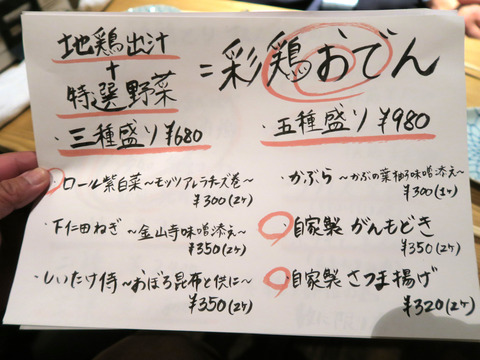 地鶏出汁
+
特選野菜
=彩鶏おでん
・三種盛り ¥680
・五種盛り ¥980
・ロール紫白菜〜モッツアレラチーズ巻〜
¥300(2ケ)
・下仁田ねぎ 〜金山寺味噌添え〜
¥350(2ケ)
・しいたけ侍〜おぼろ昆布と供に〜
¥350(2ケ)
・かぶら 〜かぶの葉柚子味噌添え〜
¥300(1ケ)
・自家製 がんもどき
¥350(2ケ)
・自家製 さつま揚げ
¥320(2ケ)